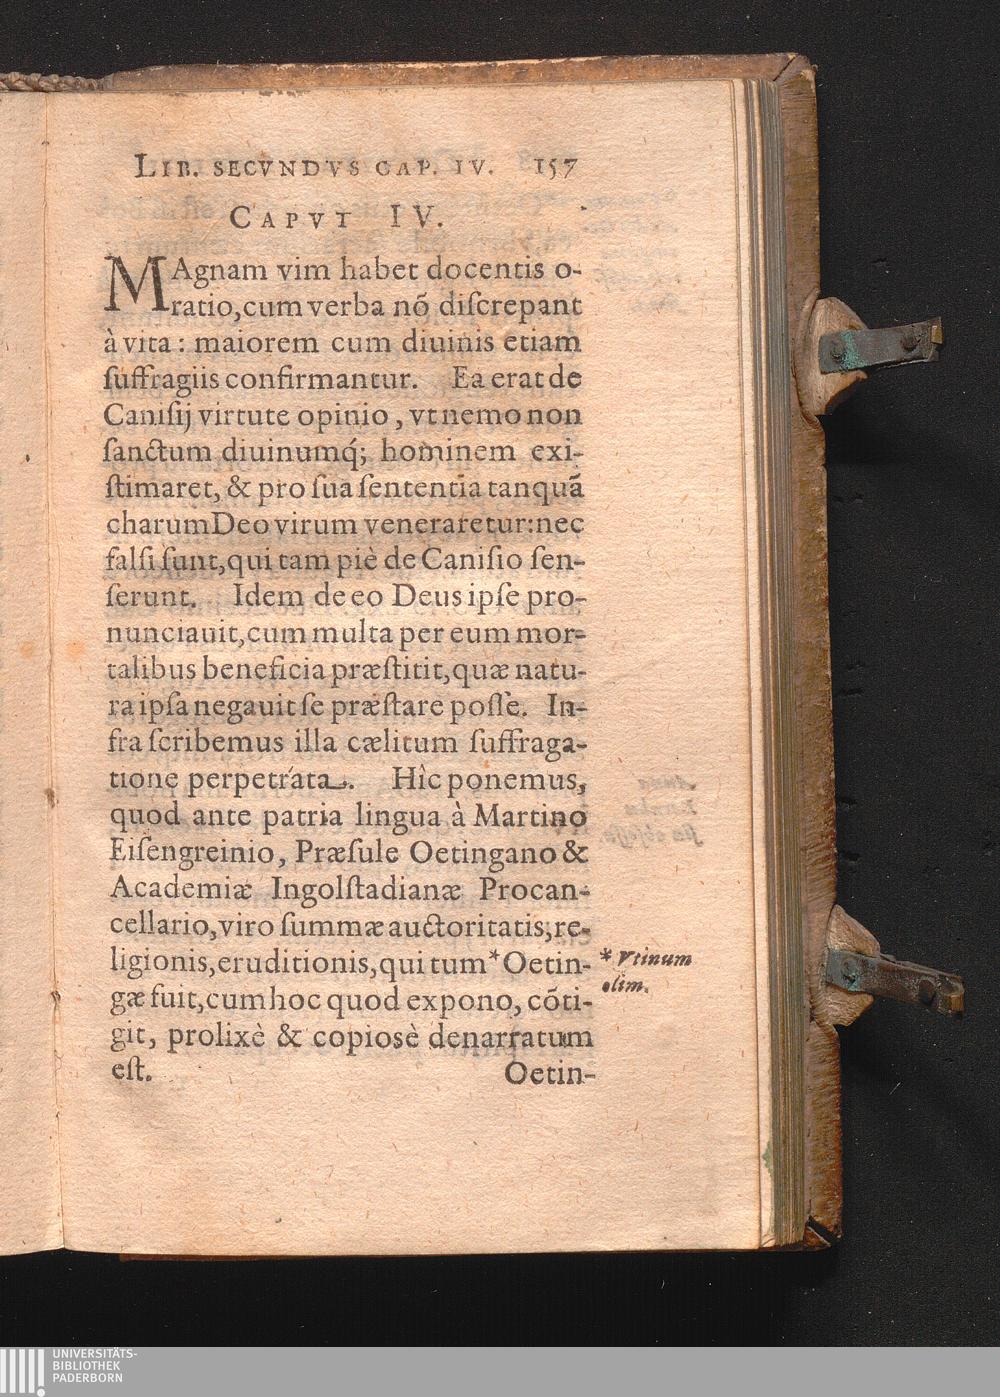 LIB. SECVNDVS CAP. IV. 157
CAPVT IV.
MAgnam vim habet docentis o-
ratio, cum verba nõ diſcrepant
à vita : maiorem cum diuinis etiam
ſuffragiis confirmantur. Ea erat de
Caniſij virtute opinio, vt nemo non
ſanctum diuinumq́; hominem exi-
ſtimaret, & pro ſua ſententia tanquã
charum Deo virum veneraretur: nec
falſi ſunt, qui tam piè de Caniſio ſen-
ſerunt. Idem de eo Deus ipſe pro-
nunciauit, cum multa per eum mor-
talibus beneficia præſtitit, quæ natu-
ra ipſa negauit ſe præſtare poſſe. In-
fra ſcribemus illa cælitum ſuffraga-
tione perpetrata. Hîc ponemus,
quod ante patria lingua à Martino
Eiſengreinio, Præſule Oetingano &
Academiæ Ingolſtadianæ Procan-
cellario, viro ſummæ auctoritatis, re-
ligionis, eruditionis, qui tum * Oetin-
gæ fuit, cum hoc quod expono, cõti-
git, prolixè & copiosè denarratum
eſt.
Oetin-
* Vtinum
olim.
UNIVERSITÄTS-
BIBLIOTHEK
PADERBORN